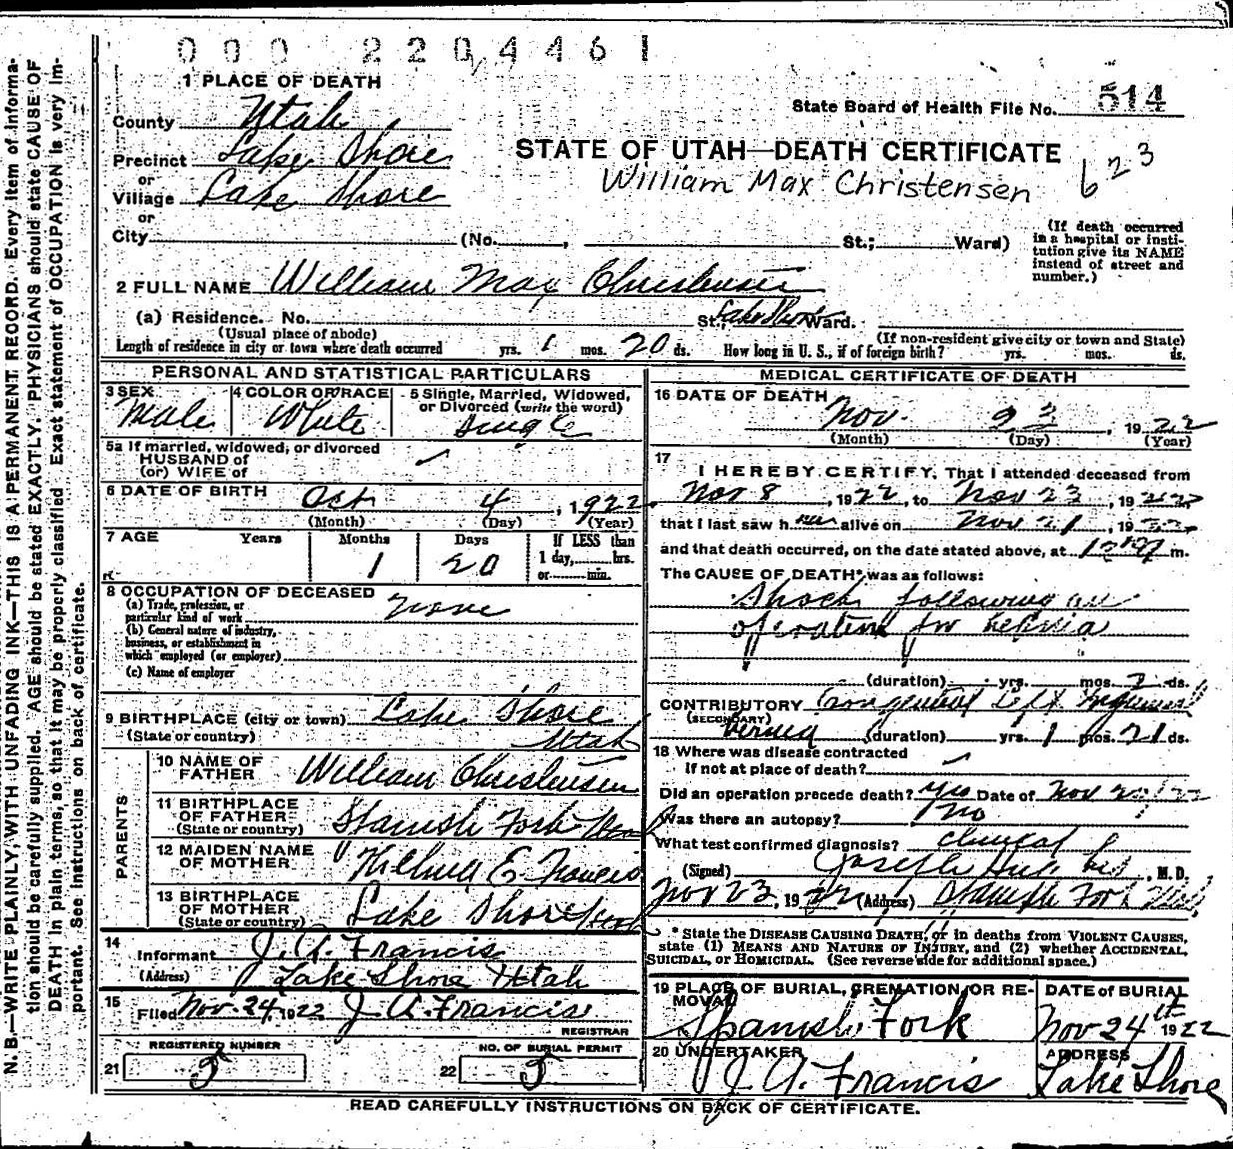 000 2204461
1 PLACE OF DEATH
State Board of Health File No. 514
County Utah
Precinct Lake Shore
STATE OF UTAH—DEATH CERTIFICATE
623
or
William Max Christensen
Village Lake Shore
or
City (No. , St.; Ward)
(If death occurred in a hospital or institution give its NAME instead of street and number.)
2 FULL NAME William Max Christensen
(a) Residence. No. St., Lake Shore Ward.
(Usual place of abode) (If non-resident give city or town and State)
Length of residence in city or town where death occurred yrs. 1 mos. 20 ds. How long in U. S., if of foreign birth? yrs. mos. ds.
PERSONAL AND STATISTICAL PARTICULARS
3 SEX Male
4 COLOR OR RACE White
5 Single, Married, Widowed, or Divorced (write the word) Single
5a If married, widowed, or divorced
HUSBAND of
(or) WIFE of
6 DATE OF BIRTH Oct 4, 1922
(Month) (Day) (Year)
7 AGE Years Months Days If LESS than
1 20 1 day, hrs.
or min.
8 OCCUPATION OF DECEASED none
(a) Trade, profession, or
particular kind of work
(b) General nature of industry,
business, or establishment in
which employed (or employer)
(c) Name of employer
9 BIRTHPLACE (city or town) Lake Shore
(State or country) Utah
PARENTS
10 NAME OF
FATHER William Christensen
11 BIRTHPLACE
OF FATHER Spanish Fork Utah
(State or country)
12 MAIDEN NAME
OF MOTHER E. Francis
13 BIRTHPLACE
OF MOTHER Lake Shore Utah
(State or country)
14 Informant J. A. Francis
(Address) Lake Shore Utah
15 Filed Nov. 24 1922 J. A. Francis
REGISTRAR
REGISTERED NUMBER NO. OF BURIAL PERMIT
21 5 22 5
MEDICAL CERTIFICATE OF DEATH
16 DATE OF DEATH
Nov. 23, 1922
(Month) (Day) (Year)
17
I HEREBY CERTIFY, That I attended deceased from
Nov 8, 1922, to Nov 23, 1922
that I last saw h alive on Nov 21, 1922
and that death occurred, on the date stated above, at m.
The CAUSE OF DEATH* was as follows:
Shock following an
operation for hernia
(duration) yrs. mos. 2 ds.
CONTRIBUTORY Congenital Left Inguinal
(SECONDARY) Hernia (duration) yrs. 1 mos. 21 ds.
18 Where was disease contracted
If not at place of death?
Did an operation precede death? Yes Date of Nov
Was there an autopsy? No
What test confirmed diagnosis? Clinical
(Signed) Joseph Hughes, M. D.
Nov 23, 1922 (Address) Spanish Fork Utah
* State the DISEASE CAUSING DEATH, or in deaths from VIOLENT CAUSES,
state (1) MEANS AND NATURE OF INJURY, and (2) whether ACCIDENTAL,
SUICIDAL, or HOMICIDAL. (See reverse side for additional space.)
19 PLACE OF BURIAL, CREMATION OR REMOVAL DATE of BURIAL
Spanish Fork Nov 24th 1922
20 UNDERTAKER ADDRESS
J. A. Francis Lake Shore
READ CAREFULLY INSTRUCTIONS ON BACK OF CERTIFICATE.
N. B.—WRITE PLAINLY, WITH UNFADING INK—THIS IS A PERMANENT RECORD. Every item of informa-
tion should be carefully supplied. AGE should be stated EXACTLY. PHYSICIANS should state CAUSE OF
DEATH in plain terms, so that it may be properly classified. Exact statement of OCCUPATION is very im-
portant. See instructions on back of certificate.